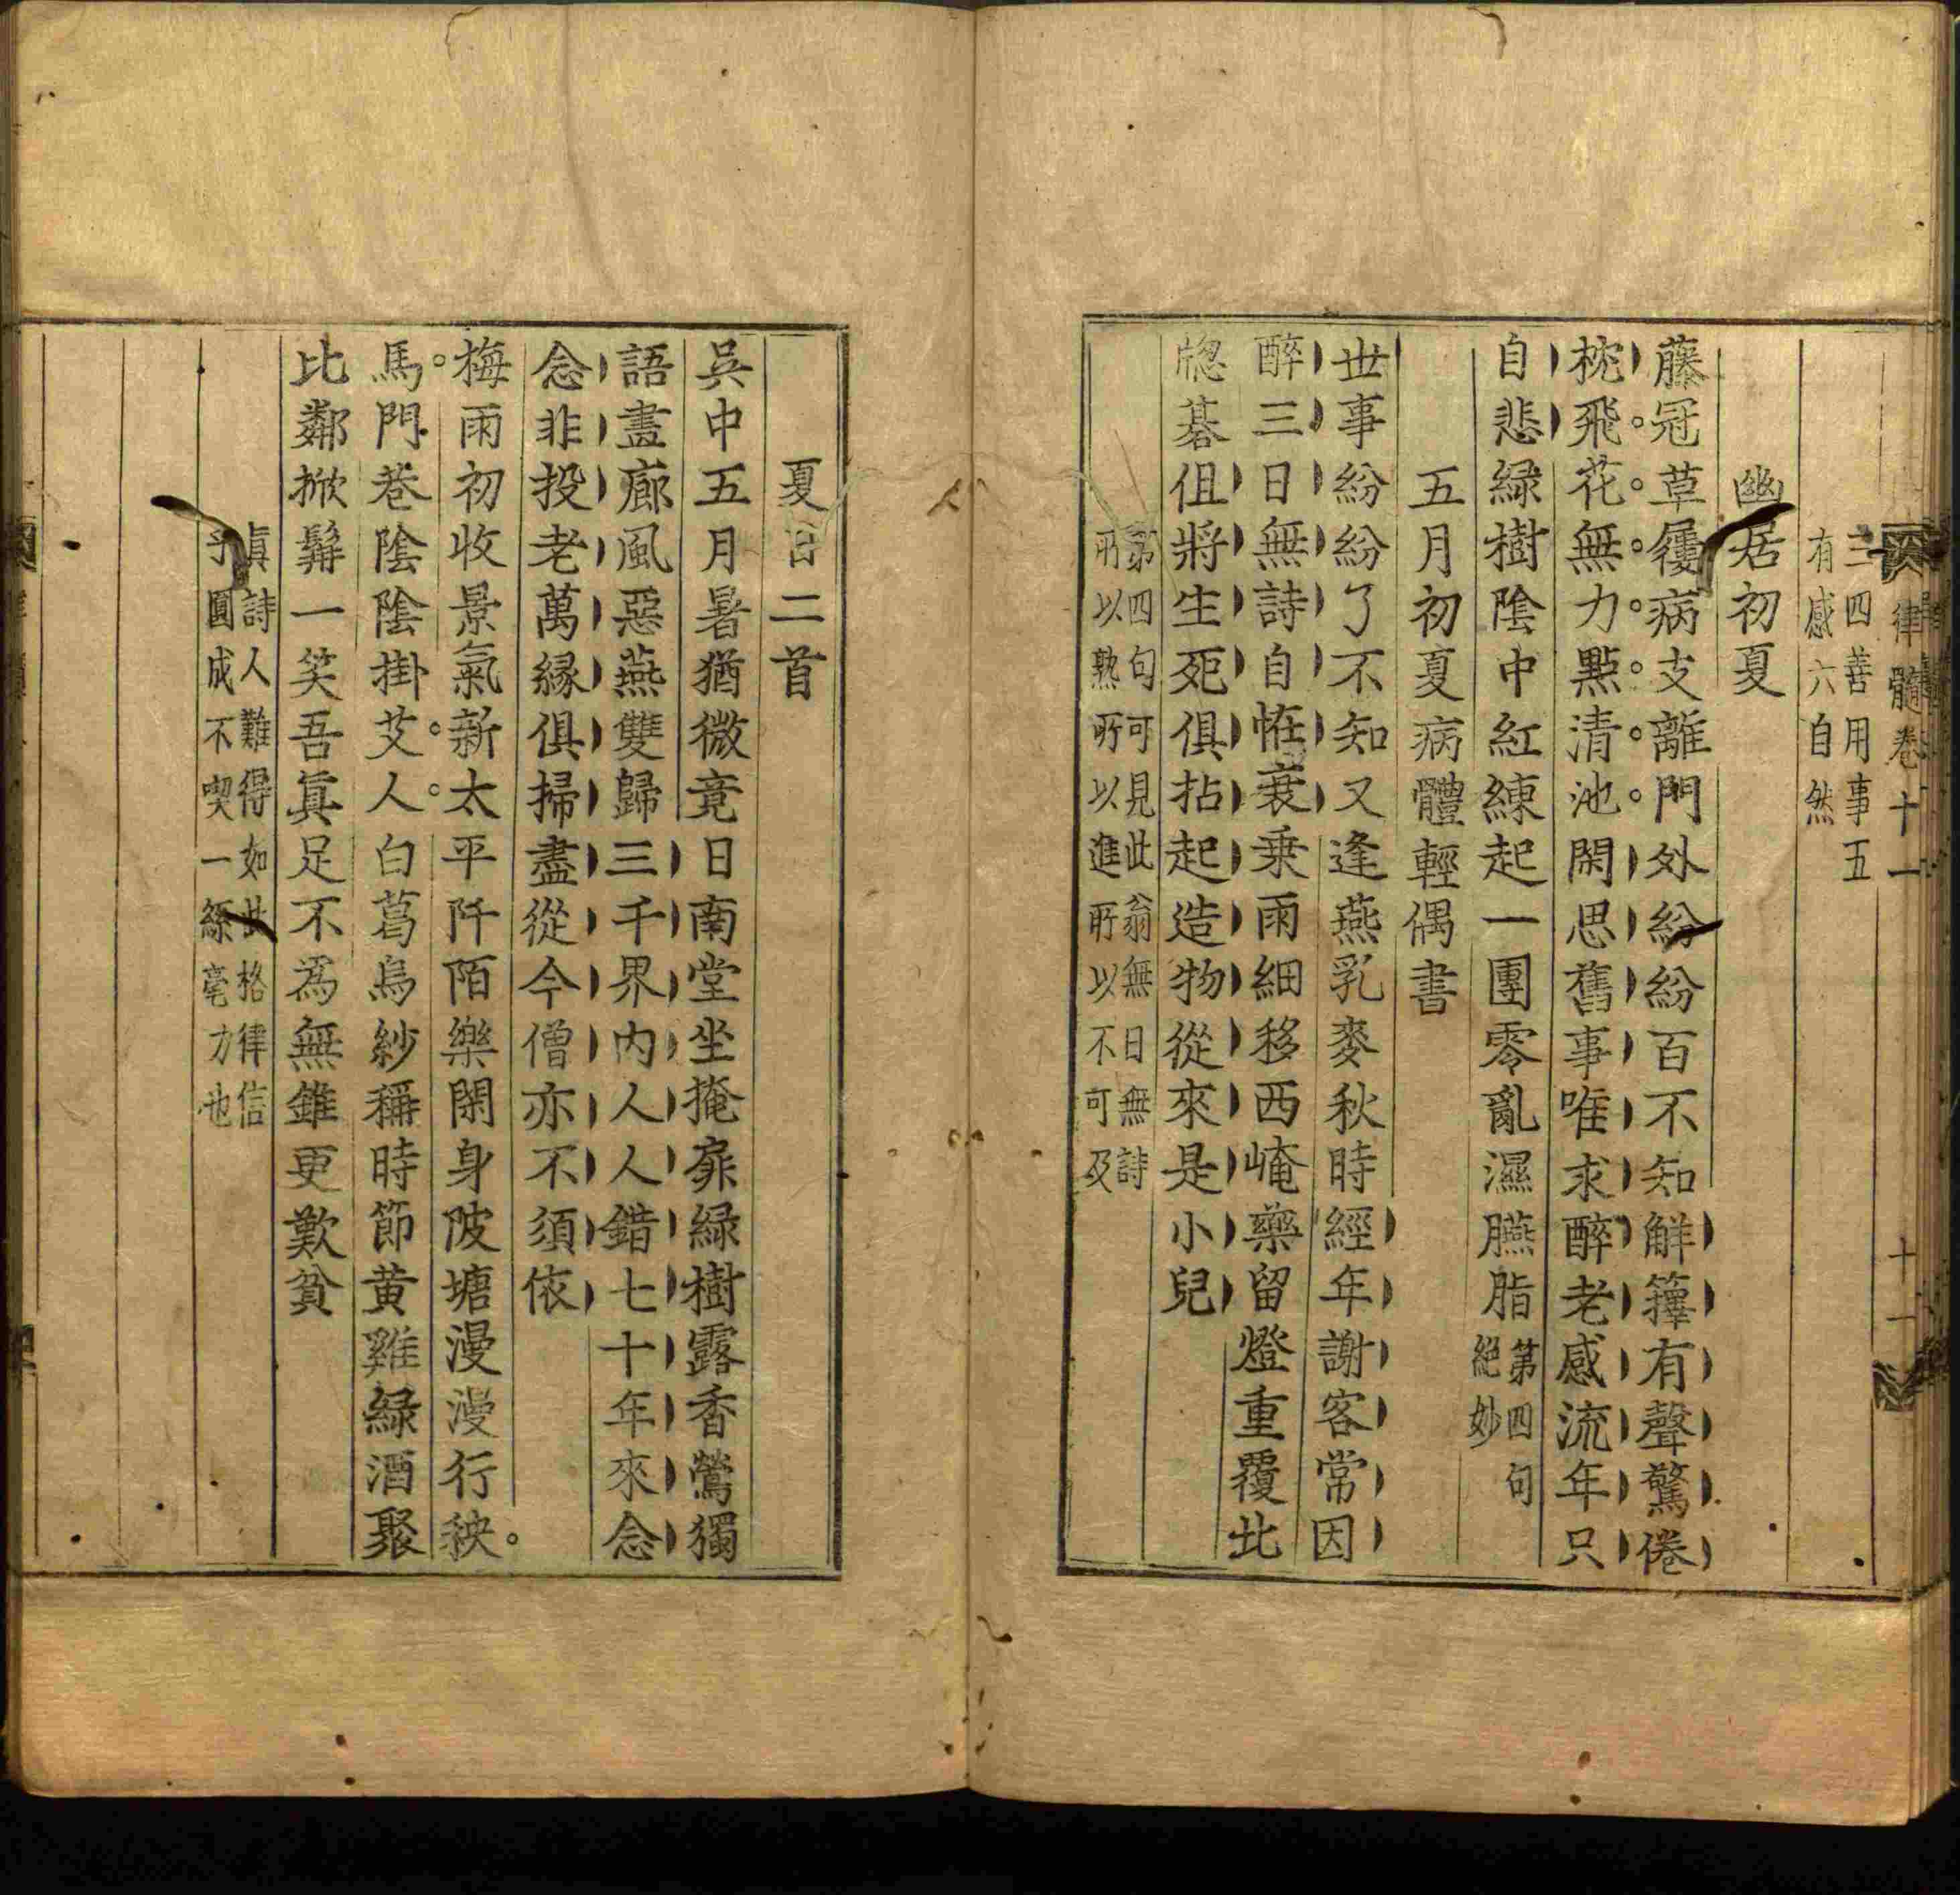 律髓卷十一 十一
三四善用事五
有感六自然
幽居初夏
藤冠草屨病支離門外紛紛百不知解籜有聲驚倦
枕飛花無力點清池閑思舊事唯求醉老感流年只
自悲緑樹陰中紅練起一團零亂濕臙脂
第四句
絕妙
五月初夏病體輕偶書
世事紛紛了不知又逢燕乳麥秋時經年謝客常因
醉三日無詩自恠衰乗雨細移西崦藥留燈重覆北
牎碁但將生死俱拈起造物從來是小兒
第四句可見此翁無日無詩
所以熟所以進所以不可及
夏日二首
吳中五月暑猶微竟日南堂坐掩扉緑樹露香鶯獨
語畫廊風惡燕雙歸三千界内人人錯七十年來念
念非投老萬縁俱掃盡從今僧亦不須依
梅雨初收景氣新太平阡陌樂閑身陂塘漫漫行秧
馬門巷陰陰掛艾人白葛烏紗稱時節黄雞緑酒聚
比鄰掀髯一笑吾真足不為無錐更歎貧
真詩人難得如此格律信
手圓成不喫一絲毫力也